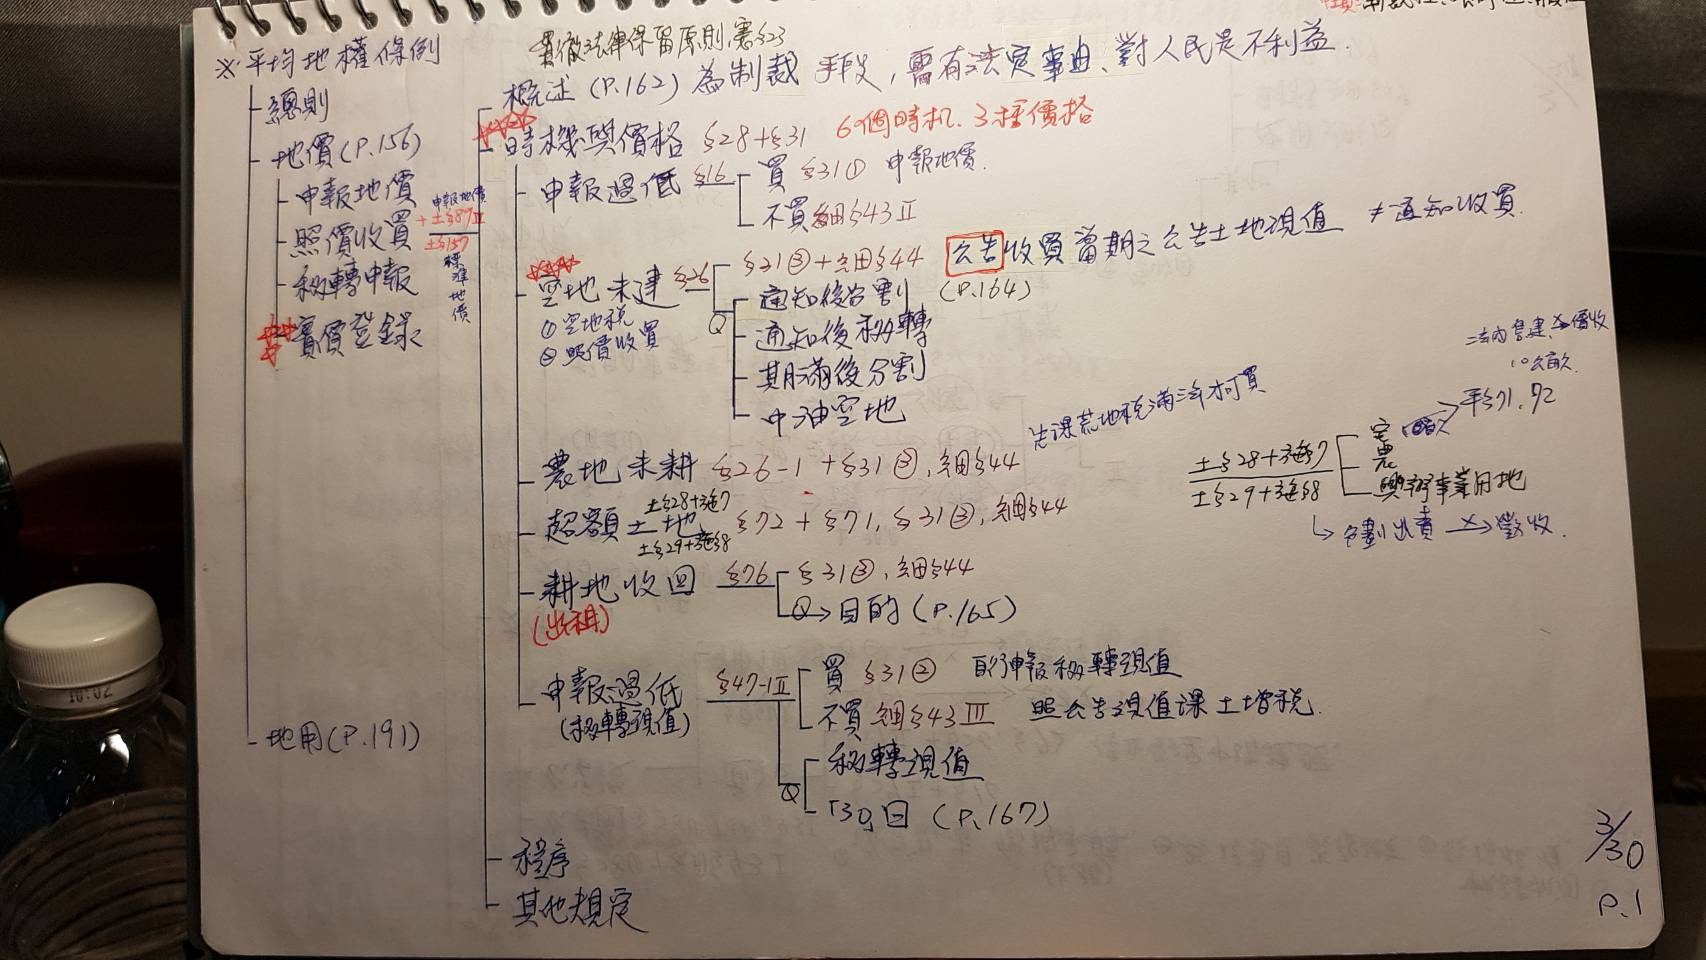 ※平均地權條例
總則
地價(P.156)
申報地價
照價收買
移轉申報
實價登錄
地用(P.191)
申報地價
+土§87Ⅱ
土§157
標準地價
貫徹法律保留原則,憲§23
概述(P.162) 為制裁手段,需有法定事由、對人民是不利益.
時機與價格 §28+§31 6個時机、3種價格
申報過低 §16
買 §31① 申報地價.
不買 細§43Ⅱ
空地未建 §26
①空地稅
②照價收買
§31③+細§44 公告收買當期之公告土地現值 ≠通知收買.
(P.164)
Q
通知後分割
通知後移轉
期滿後分割
中油空地
農地未耕 §26-1+§31③,細§44
先課荒地稅滿三年才可買
超額土地 §72+§71,§31③,細§44
土§28+施7
土§29+施§8
耕地收回 §76
(出租)
§31③,細§44
Q→目的(P.165)
申報過低 §47-1Ⅱ
(移轉現值)
買 §31② 申報移轉現值
不買 細§43Ⅲ 照公告現值課土增稅.
Q
移轉現值
「30」日(P.167)
程序
其他規定
10公畝
平§71.72
土§28+施§7
土§29+施§8
宅
農
興辦事業用地
↳ 分劃出賣 ✕→ 徵收.
3/30
P.1